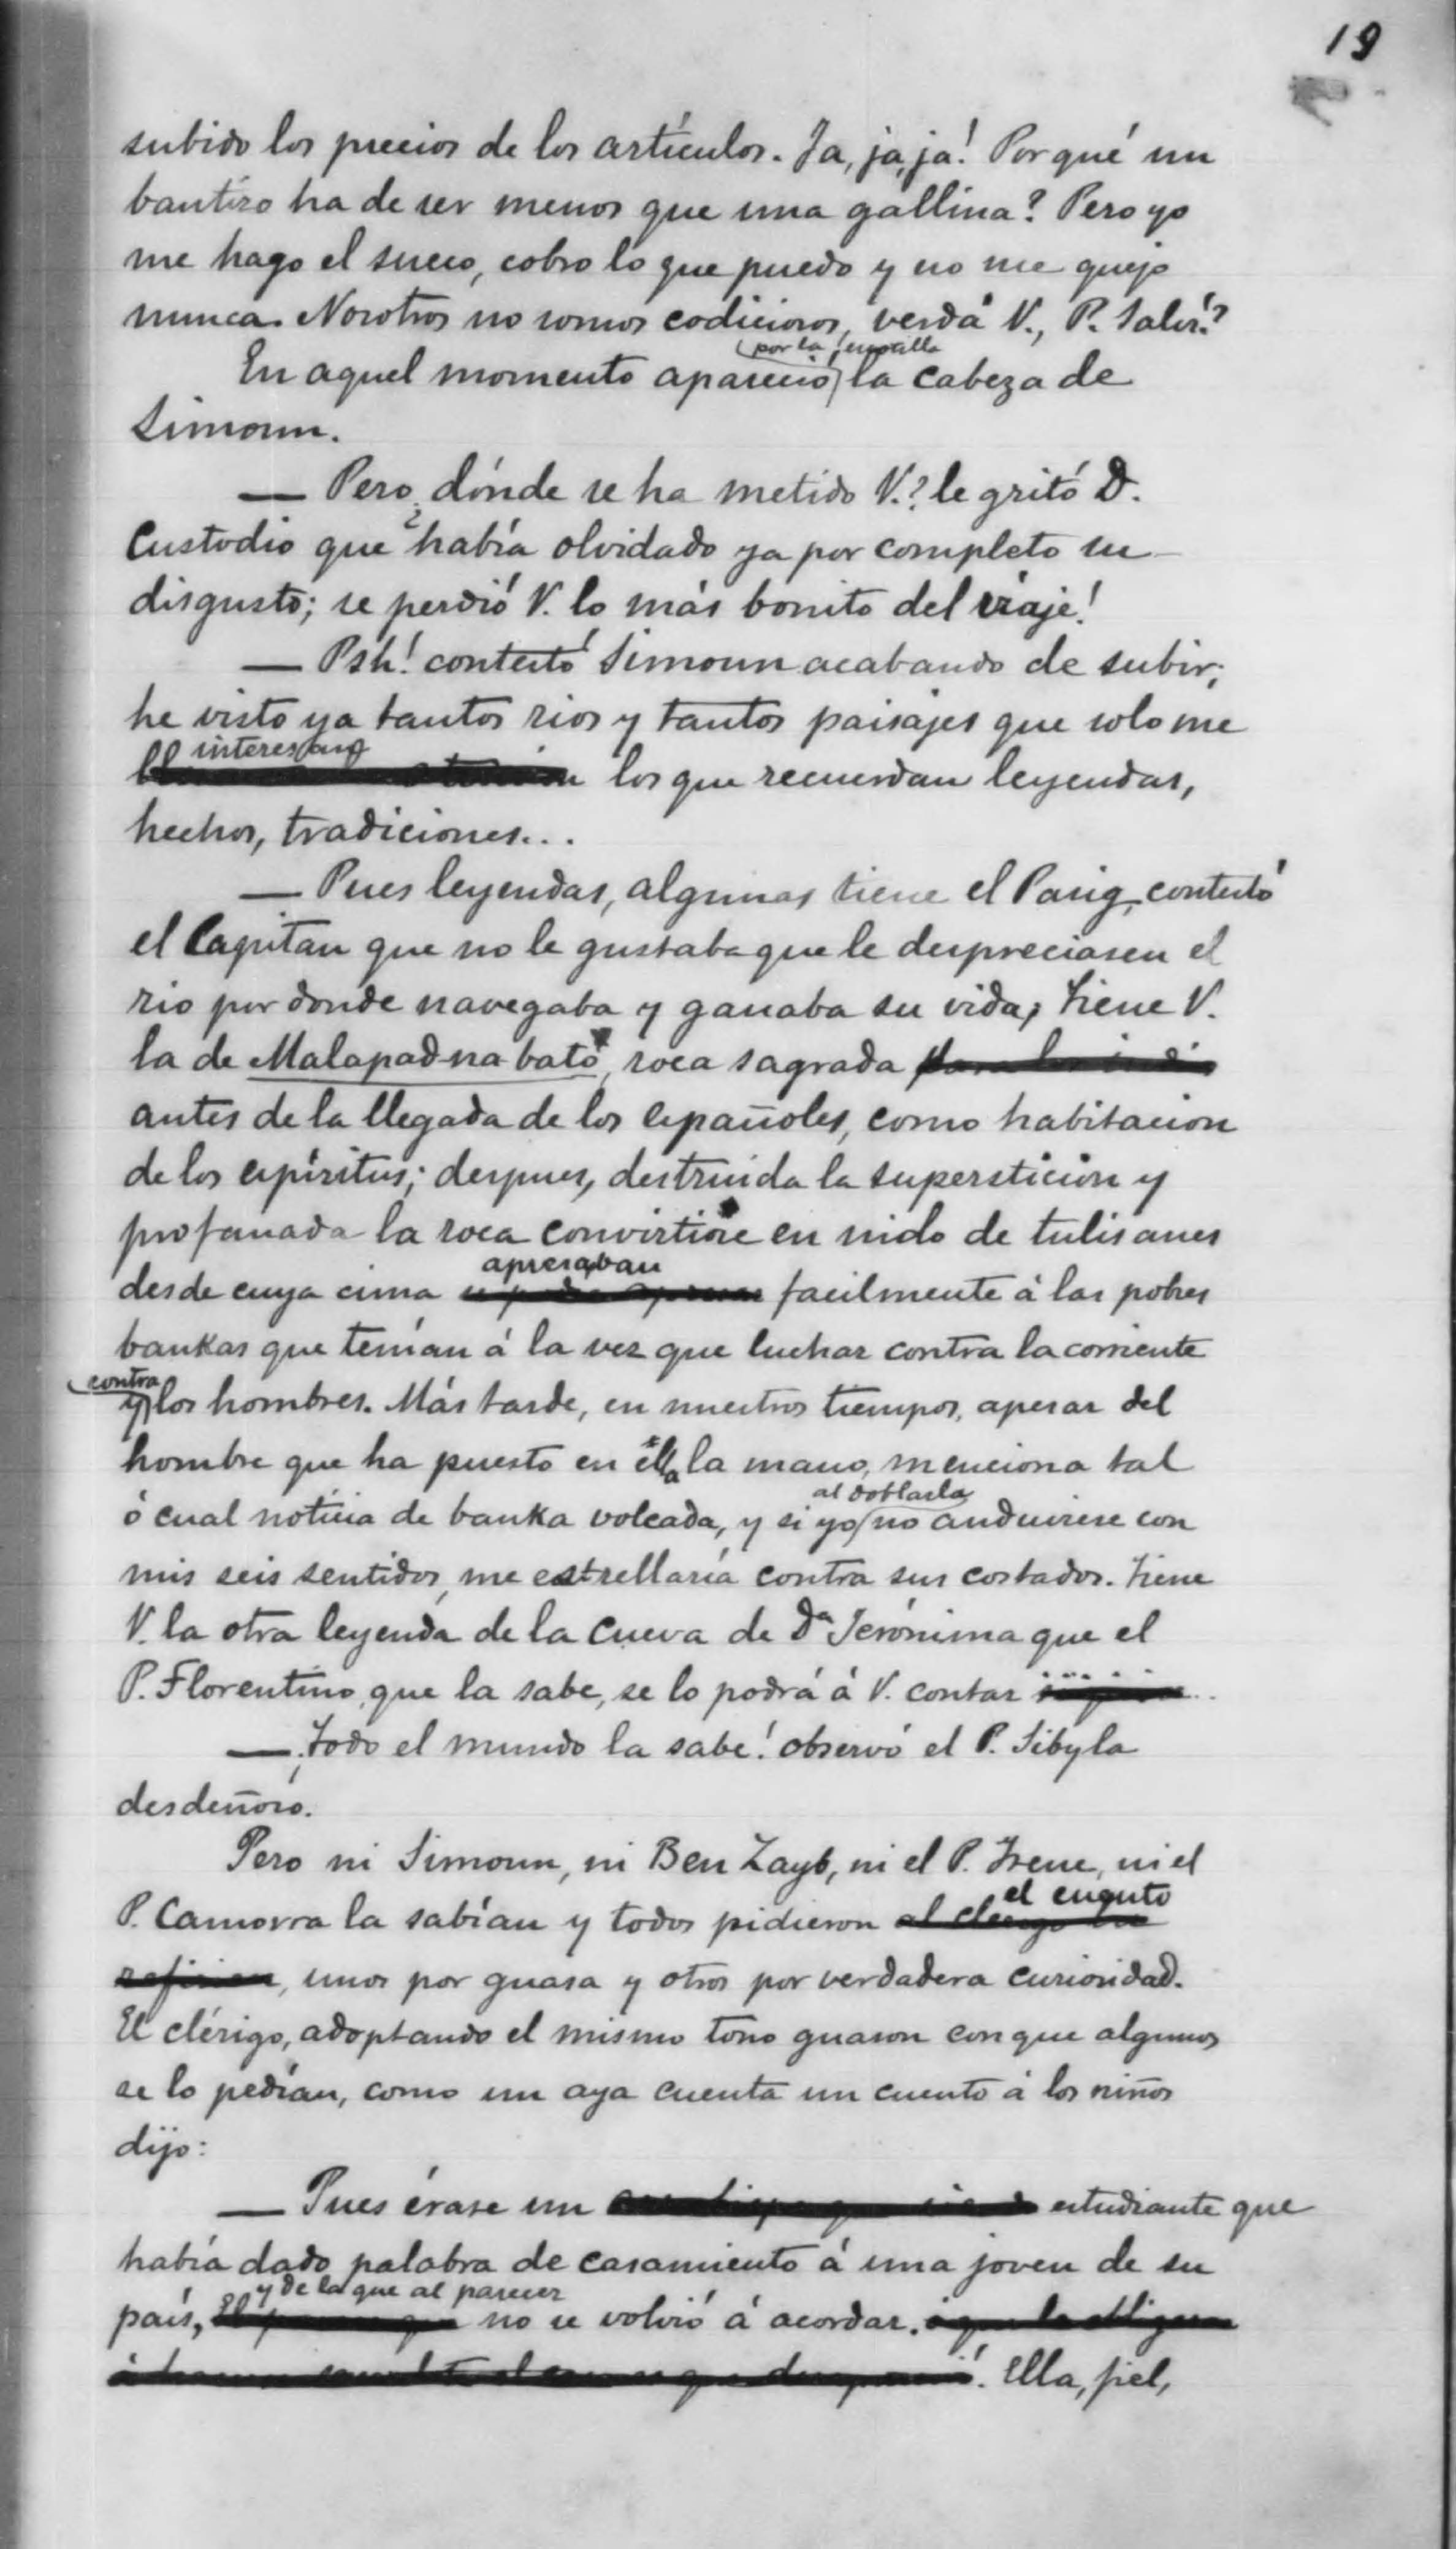 19
subido los precios de los artículos. Ja, ja, ja! Por qué un
bautizo ha de ser menos que una gallina? Pero yo
me hago el sueco, cobro lo que puedo y no me quejo
nunca. Nosotros no somos codiciosos, verdá V., P. Salví?
por la escotilla
En aquel momento apareció la cabeza de
Simoun.
— Pero ¿dónde se ha metido V.? le gritó D.
Custodio que había olvidado ya por completo su
disgusto; se perdió V. lo más bonito del viaje!
— Psh! contestó Simoun acabando de subir;
he visto ya tantos rios y tantos paisajes que solo me
interesan
los que recuerdan leyendas,
hechos, tradiciones...
— Pues leyendas, algunas tiene el Pasig, contestó
el Capitan que no le gustaba que le despreciasen el
rio por donde navegaba y ganaba su vida; tiene V.
la de Malapad-na-bató, roca sagrada
antes de la llegada de los españoles, como habitacion
de los espíritus; despues, destruida la supersticion y
profanada la roca convirtióse en nido de tulisanes
apresaban
desde cuya cima facilmente á las pobres
bankas que tenían á la vez que luchar contra la corriente
contra
y los hombres. Más tarde, en nuestros tiempos, apesar del
hombre que ha puesto en ella la mano, menciona tal
al doblarla
ó cual noticia de banka volcada, y si yo no anduviese con
mis seis sentidos, me estrellaría contra sus costados. Tiene
V. la otra leyenda de la cueva de Dª Jerónima que el
P. Florentino, que la sabe, se lo podrá á V. contar ....
— ¡Todo el mundo la sabe! observó el P. Sibyla
desdeñoso.
Pero ni Simoun, ni Ben Zayb, ni el P. Irene, ni el
el cuento
P. Camorra la sabían y todos pidieron
, unos por guasa y otros por verdadera curiosidad.
El clérigo, adoptando el mismo tono guason con que algunos
se lo pedían, como un aya cuenta un cuento á los niños
dijo:
— Pues érase un estudiante que
había dado palabra de casamiento á una joven de su
y de la que al parecer
país, no se volvió á acordar.
. Ella, fiel,